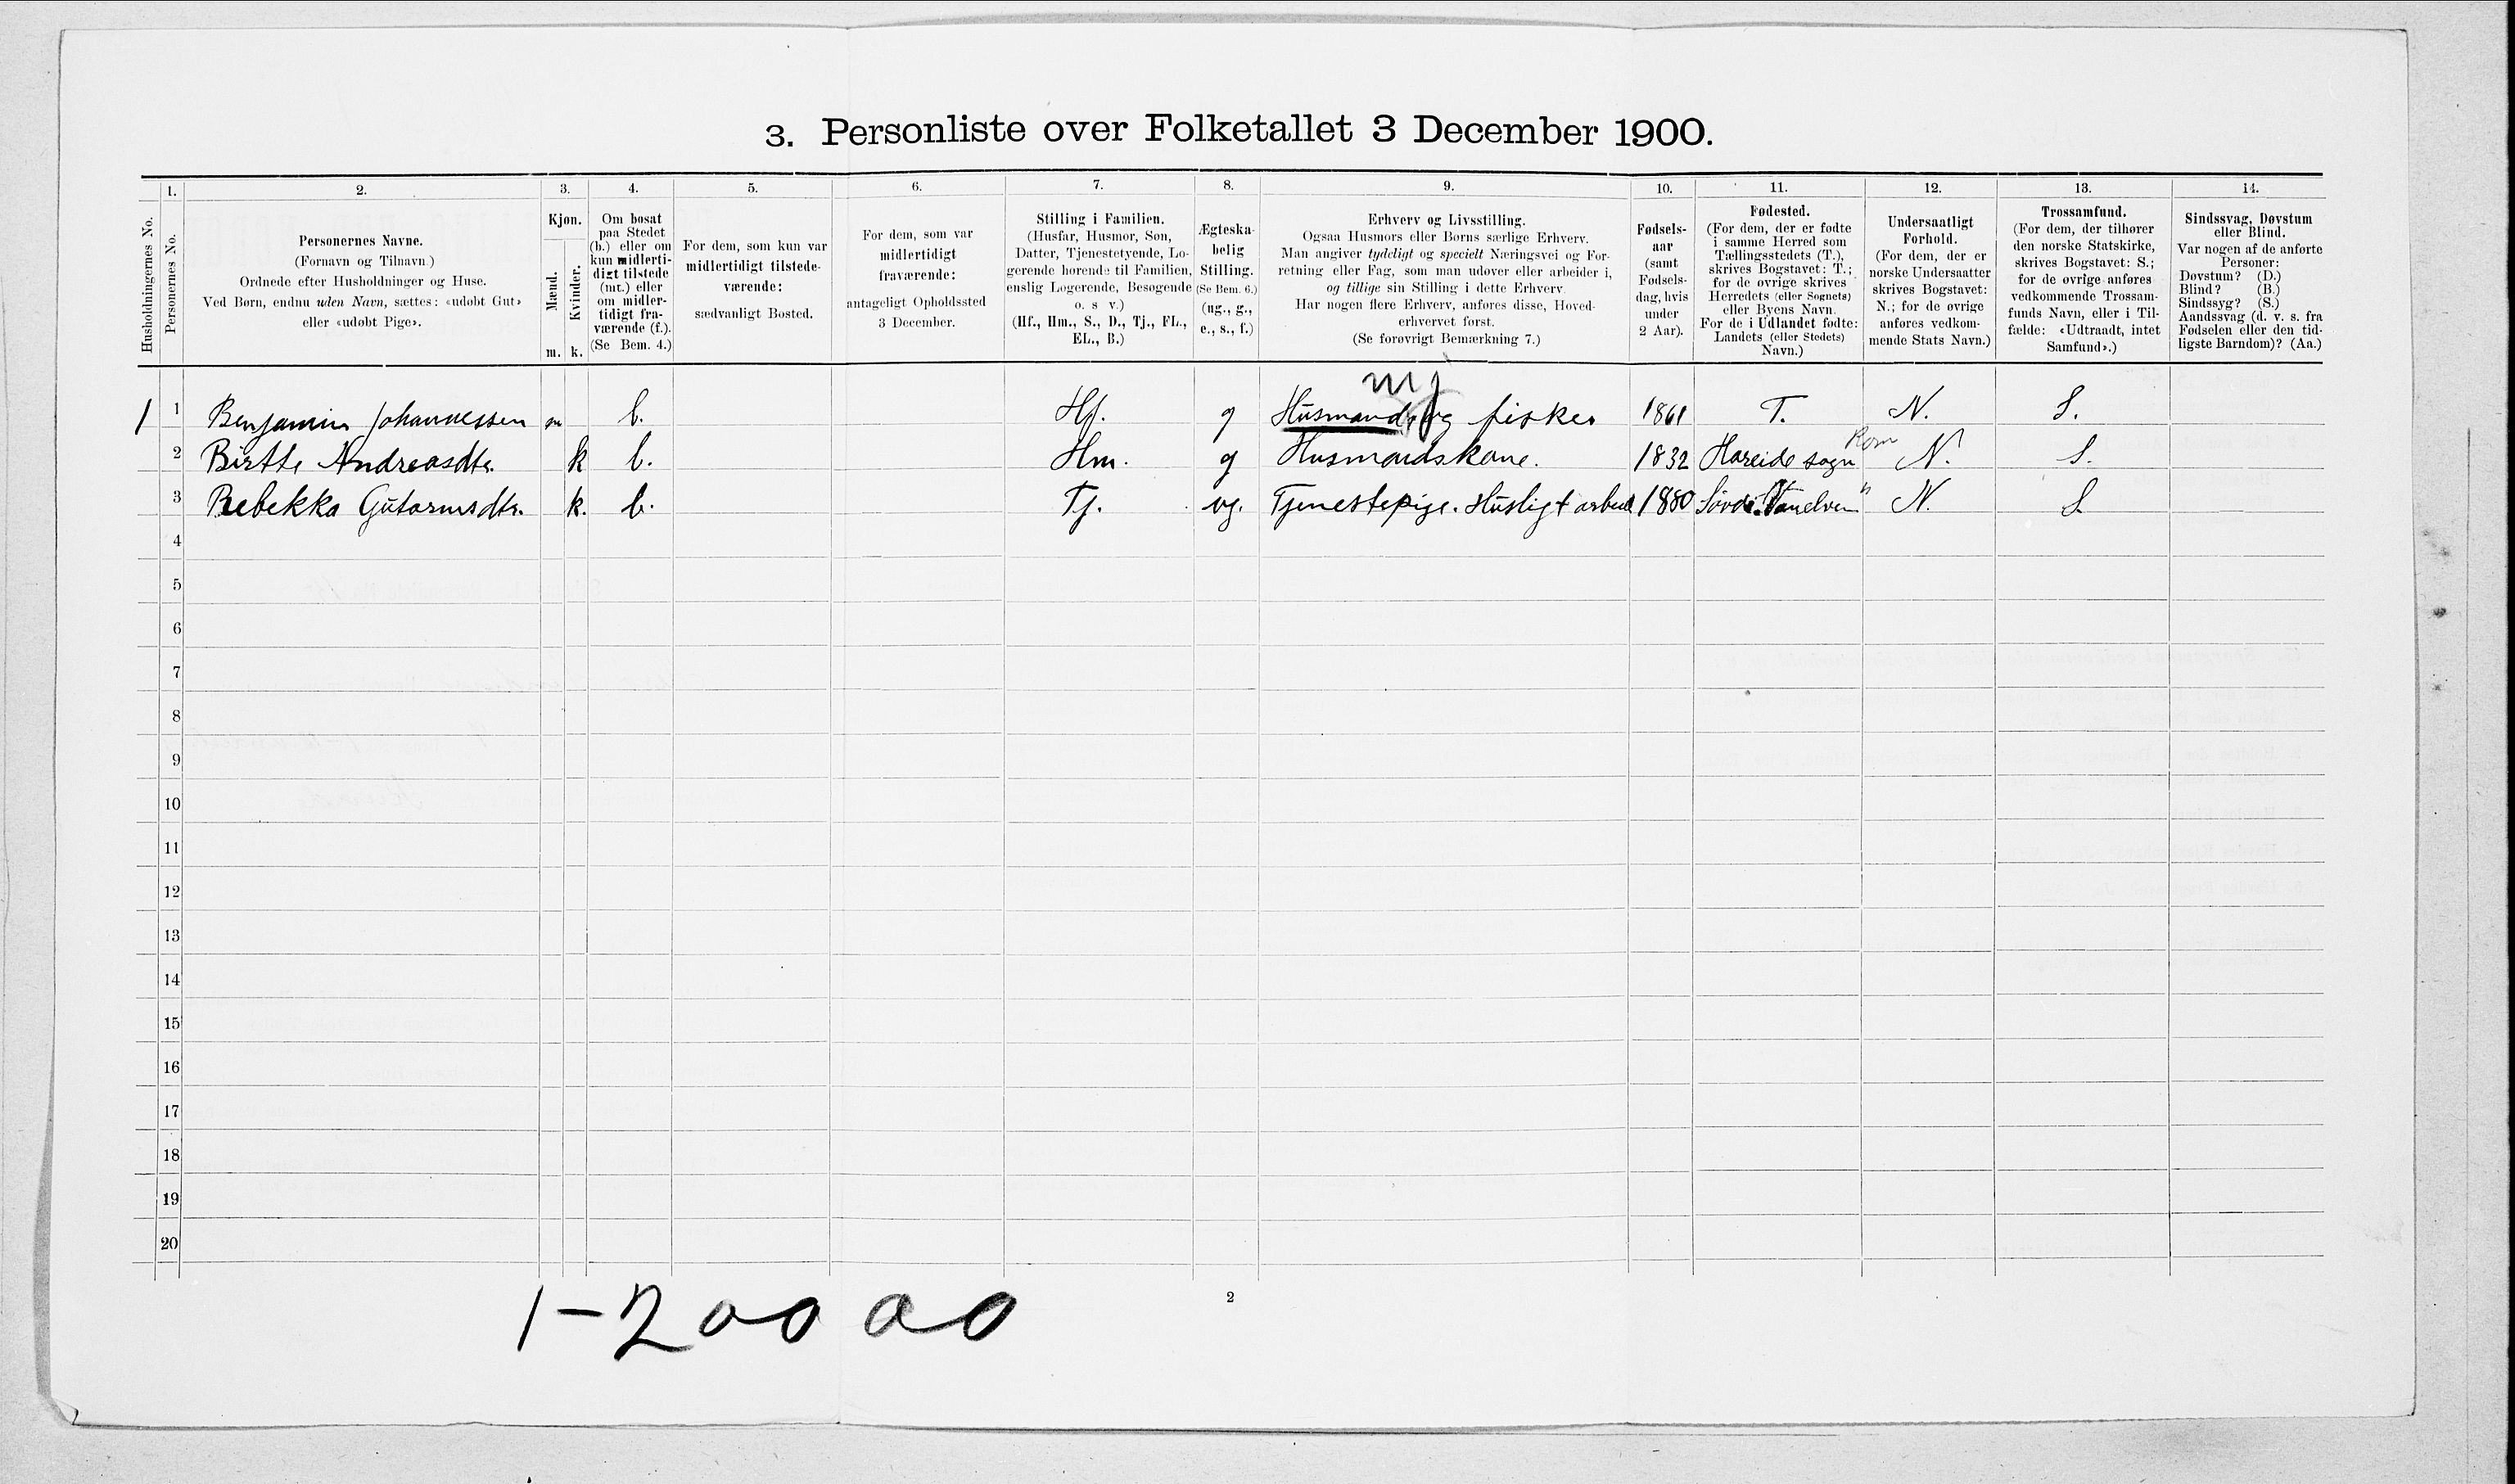 3. Personliste over Folketallet 3 December 1900.
1. 2. 3. 4. 5. 6. 7. 8. 9. 10. 11. 12. 13. 14.
Husholdningernes No.
Personernes No.
Personernes Navne.
(Fornavn og Tilnavn.)
Ordnede efter Husholdninger og Huse.
Ved Børn, endnu uden Navn, sættes: «udøbt Gut»
eller «udøbt Pige».
Kjøn.
Mænd.
Kvinder.
m. k.
Om bosat
paa Stedet
(b.) eller om
kun midlerti-
digt tilstede
(mt.) eller
om midler-
tidigt fra-
værende (f.).
(Se Bem. 4.)
For dem, som kun var
midlertidigt tilstede-
værende:
sædvanligt Bosted.
For dem, som var
midlertidigt
fraværende:
antageligt Opholdssted
3 December.
Stilling i Familien.
(Husfar, Husmor, Søn,
Datter, Tjenestetyende, Lo-
gerende hørende til Familien,
enslig Logerende, Besøgende
o. s v.)
(Hf., Hm., S., D., Tj., FL.,
EL., B.)
Ægteska-
belig
Stilling.
(Se Bem. 6.)
(ug., g.,
e., s., f.)
Erhverv og Livsstilling.
Ogsaa Husmors eller Børns særlige Erhverv.
Man angiver tydeligt og specielt Næringsvei og For-
retning eller Fag, som man udøver eller arbeider i,
og tillige sin Stilling i dette Erhverv.
Har nogen flere Erhverv, anføres disse, Hoved-
erhvervet først.
(Se forøvrigt Bemærkning 7.)
Fødsels-
aar
(samt
Fødsels-
dag, hvis
under
2 Aar).
Fødested.
(For dem, der er fødte
i samme Herred som
Tællingsstedets (T.),
skrives Bogstavet: T.;
for de øvrige skrives
Herredets (eller Sognets)
eller Byens Navn.
For de i Udlandet fødte:
Landets (eller Stedets)
Navn.)
Undersaatligt
Forhold.
(For dem, der er
norske Undersaatter
skrives Bogstavet:
N.; for de øvrige
anføres vedkom-
mende Stats Navn.)
Trossamfund.
(For dem, der tilhører
den norske Statskirke,
skrives Bogstavet: S.;
for de øvrige anføres
vedkommende Trossam-
funds Navn, eller i Til-
fælde: «Udtraadt, intet
Samfund».)
Sindssvag, Døvstum
eller Blind.
Var nogen af de anførte
Personer:
Døvstum? (D.)
Blind? (B.)
Sindssyg? (S.)
Aandssvag (d. v. s. fra
Fødselen eller den tid-
ligste Barndom)? (Aa.)
mj
1 1 Benjamin Johannessen m b. Hf. g Husmand og fisker 1861 T. N. S.
Rom
2 Birtte Andreasdtr. k b. Hm. g Husmandskone. 1832 Hareide sogn N. S.
3 Rebekka Gutormsdtr. k. b. Tj. ug. Tjenestepige. Husligt arbeid 1880 Søvde. Vanelven " N. S.
4
5
6
7
8
9
10
11
12
13
14
15
16
17
18
19
20
2
1-200 00